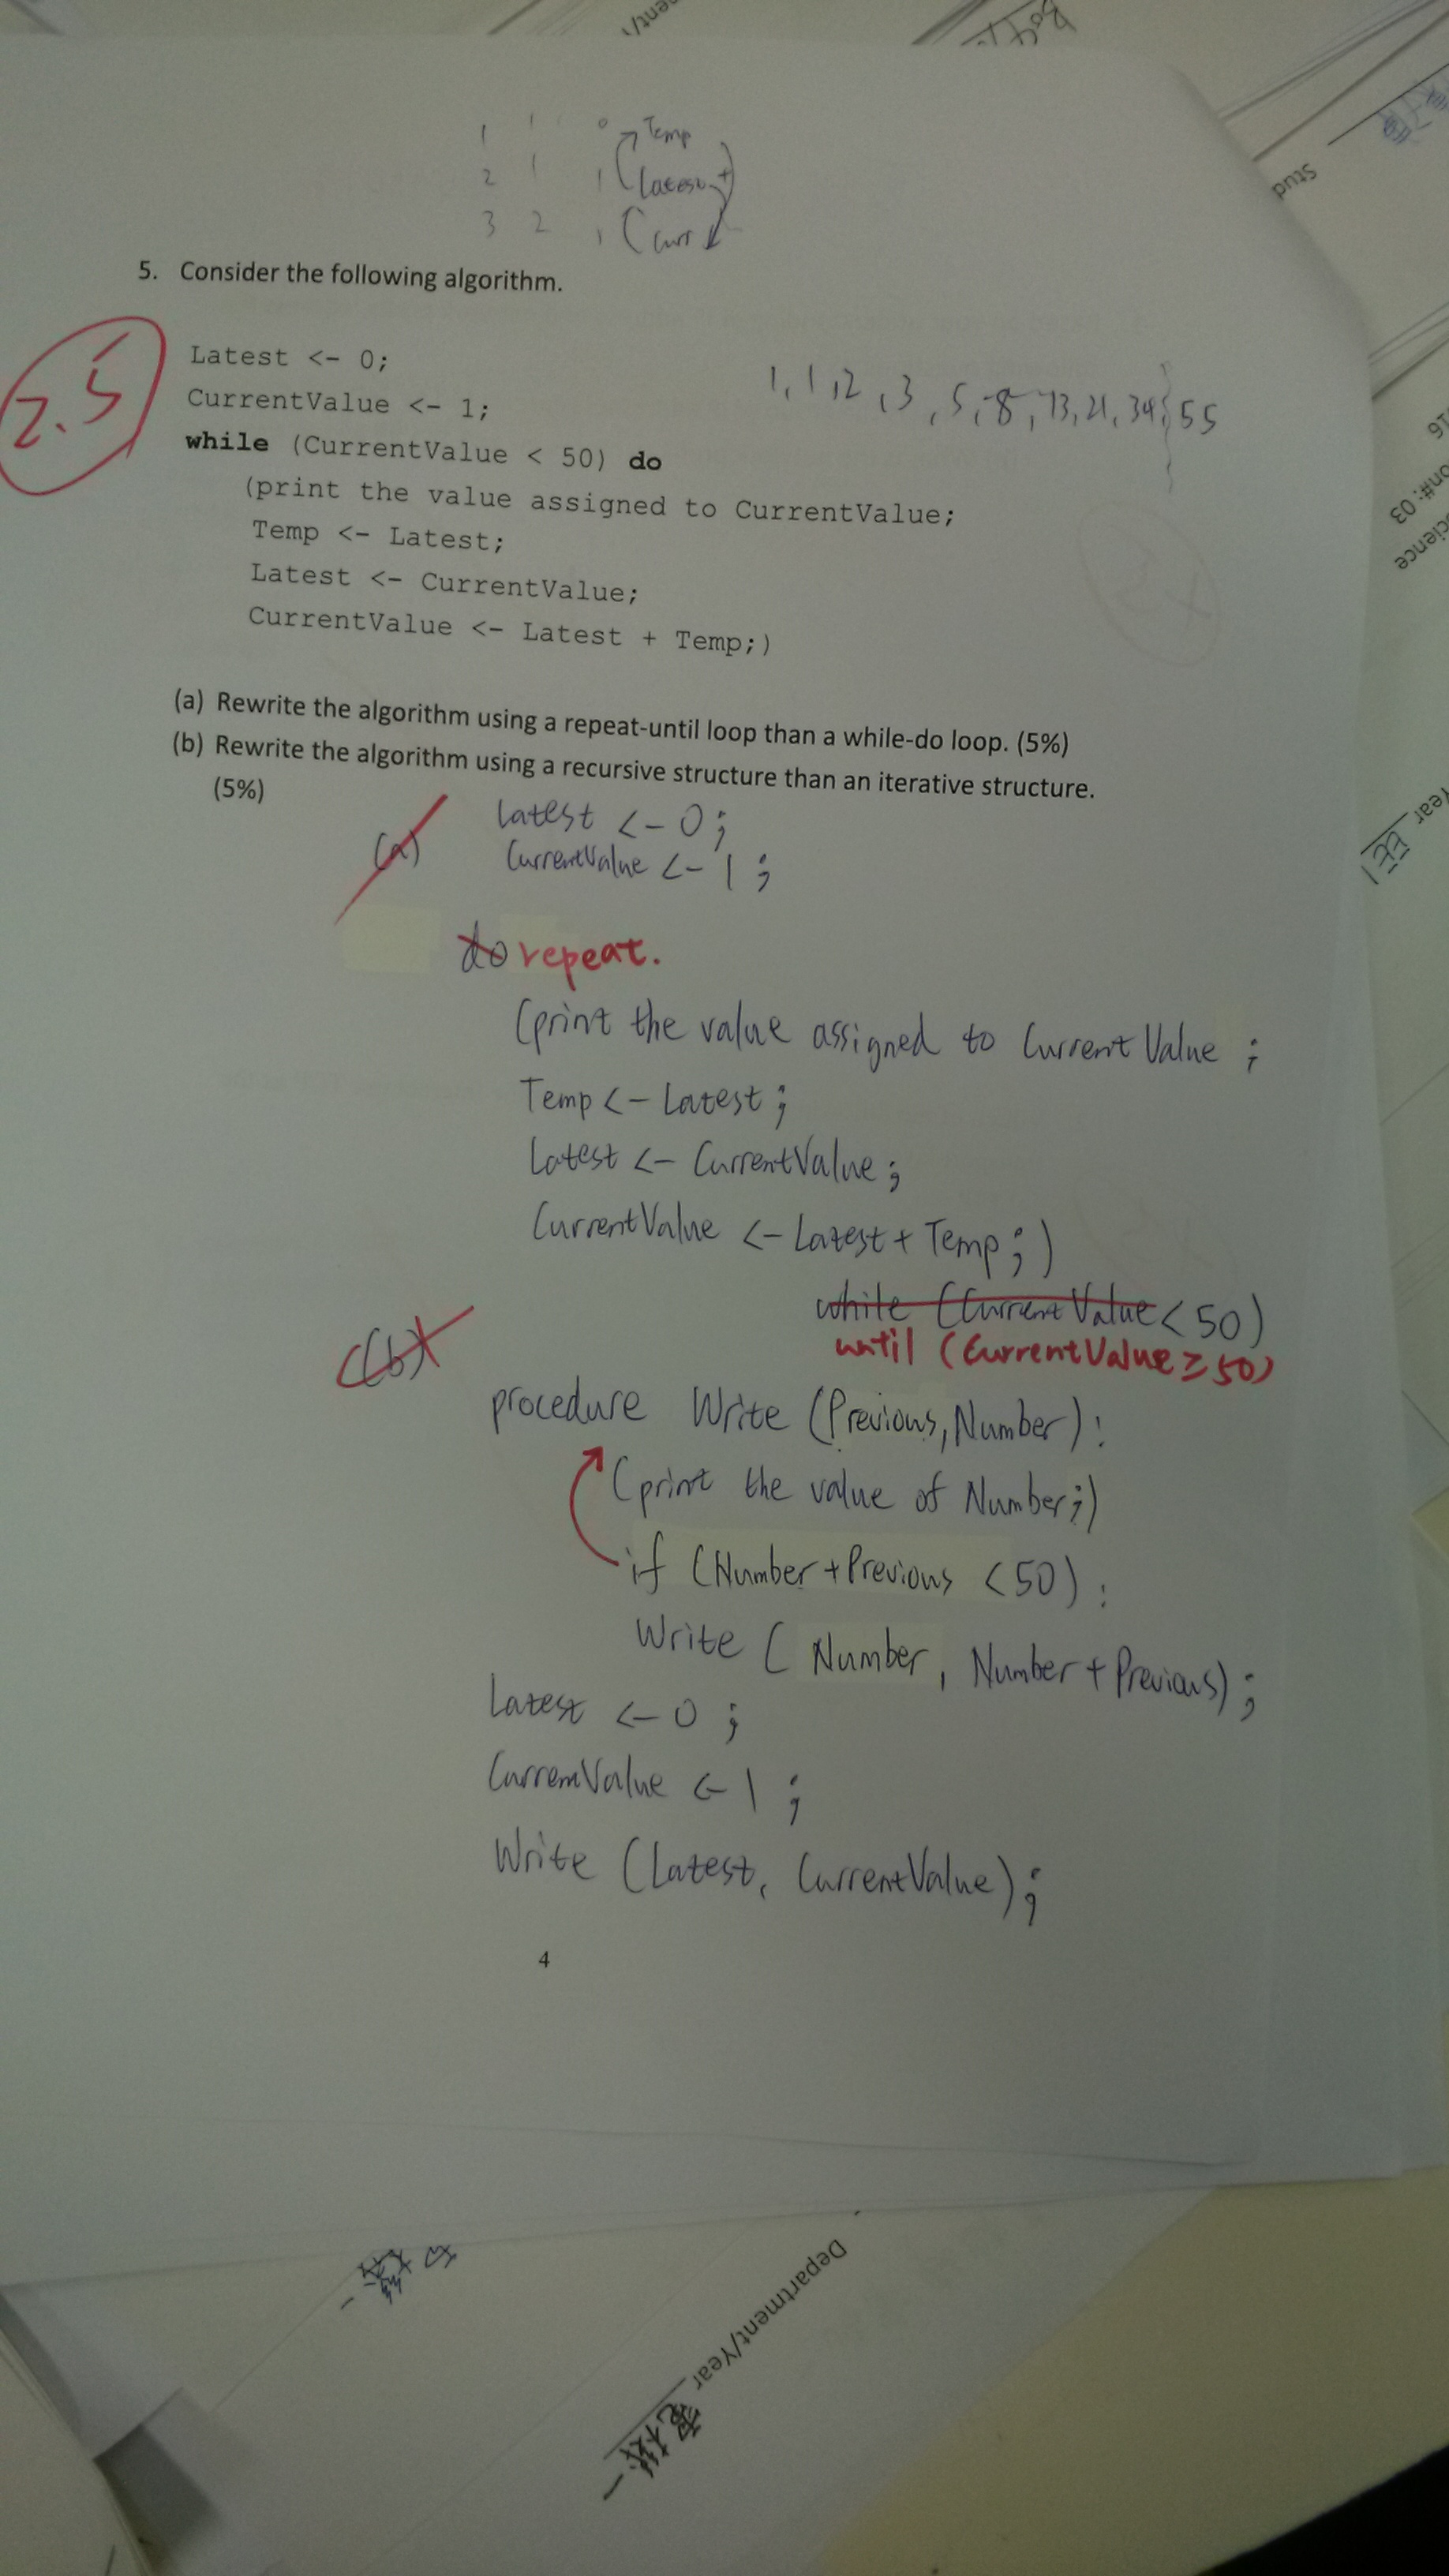 1 1 0 Temp
2 1 1 Latest +
3 2 1 Curr
5. Consider the following algorithm.
2.5
Latest <- 0;
CurrentValue <- 1;
1, 1, 2, 3, 5, 8, 13, 21, 34, 55
while (CurrentValue < 50) do
(print the value assigned to CurrentValue;
Temp <- Latest;
Latest <- CurrentValue;
CurrentValue <- Latest + Temp;)
(a) Rewrite the algorithm using a repeat-until loop than a while-do loop. (5%)
(b) Rewrite the algorithm using a recursive structure than an iterative structure.
(5%)
(a) Latest <- 0;
CurrentValue <- 1;
do repeat.
(print the value assigned to CurrentValue;
Temp <- Latest;
Latest <- CurrentValue;
CurrentValue <- Latest + Temp;)
while (CurrentValue < 50)
until (CurrentValue ≥ 50)
(b)
procedure Write (Previous, Number):
(print the value of Number;)
if (Number + Previous < 50):
Write (Number, Number + Previous);
Latest <- 0;
CurrentValue <- 1;
Write (Latest, CurrentValue);
4
Stud
16
on#: 03
cience
Year EE1
Department/Year